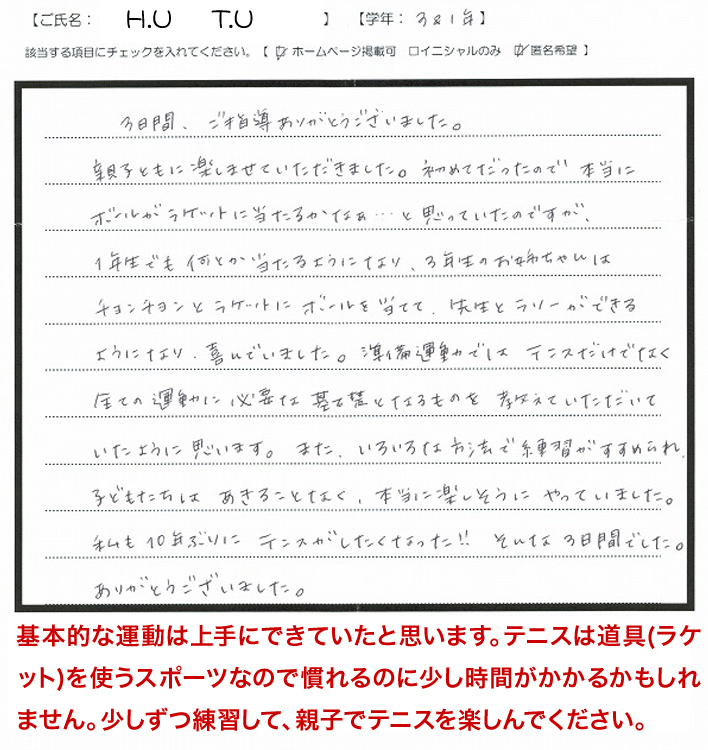 【ご氏名： H.U T.U 】 【学年： 3&1年】
該当する項目にチェックを入れてください。【 ☑ ホームページ掲載可 □イニシャルのみ ☑匿名希望 】
3日間、ご指導ありがとうございました。
親子ともに楽しませていただきました。初めてだったので 本当に
ボールがラケットに当たるかなぁ…と思っていたのですが、
1年生でも何とか当たるようになり、3年生のお姉ちゃんは
チョンチョンとラケットにボールを当てて、先生とラリーができる
ようになり、喜んでいました。準備運動では テニスだけでなく
全ての運動に必要な基礎となるものを 教えていただいて
いたように思います。また、いろいろな方法で練習がすすめられ、
子どもたちは あきることなく、本当に楽しそうに やっていました。
私も10年ぶりに テニスがしたくなった!! そんな3日間でした。
ありがとうございました。
基本的な運動は上手にできていたと思います。テニスは道具(ラケ
ット)を使うスポーツなので慣れるのに少し時間がかかるかもしれ
ません。少しずつ練習して、親子でテニスを楽しんでください。